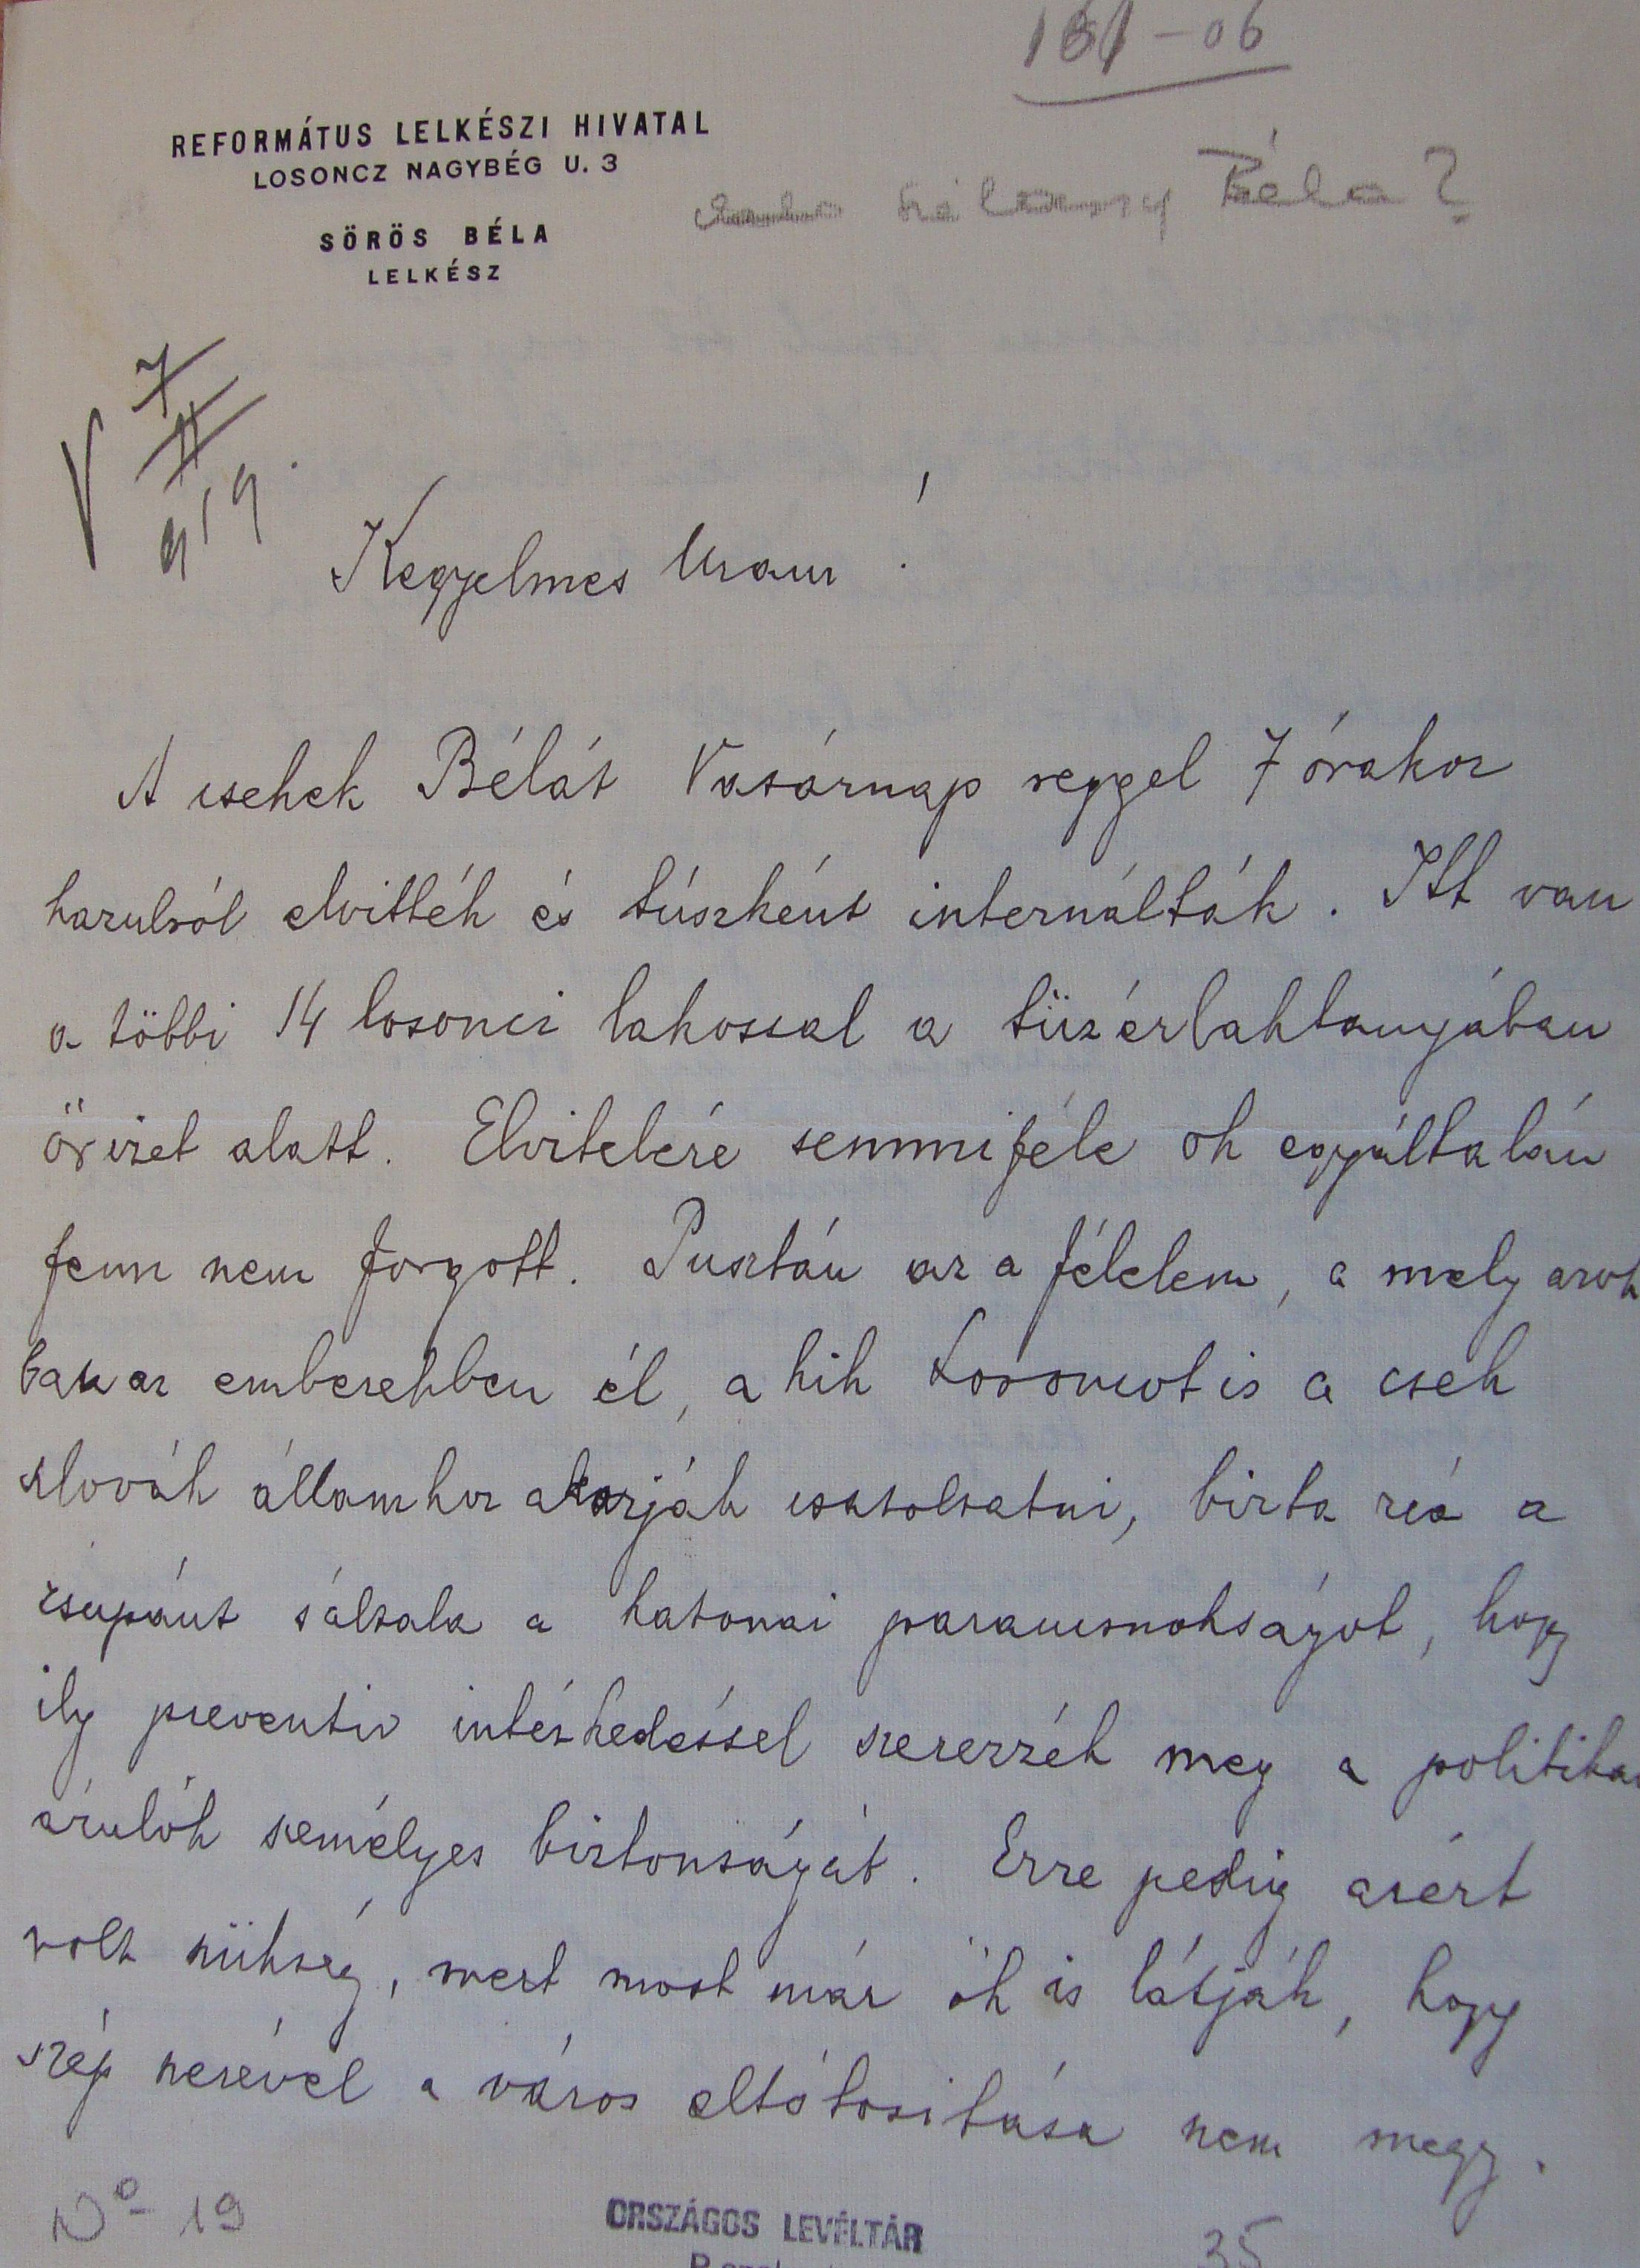 181-06
REFORMÁTUS LELKÉSZI HIVATAL
LOSONCZ NAGYBÉG U. 3
SÖRÖS BÉLA
LELKÉSZ
Béla?
V 7/II 919.
Kegyelmes Uram!
A csehek Bélát Vasárnap reggel 7 órakor
hazulról elvitték és túszként internálták. Itt van
a többi 14 losonci lakossal a tüzérlaktanyában
őrizet alatt. Elvitelére semmiféle ok egyáltalán
fenn nem forgott. Pusztán az a félelem, a mely azok
ban az emberekben él, a kik Losoncot is a cseh
szlovák államhoz akarják csatoltatni, birta reá a
zsupánt s általa a katonai parancsnokságot, hogy
ily preventiv intézkedéssel szerezzék meg a politikai
árulók személyes biztonságát. Erre pedig azért
volt szükség, mert most már ők is látják, hogy
szép szerével a város eltótositása nem megy.
No 19
ORSZÁGOS LEVÉLTÁR
35